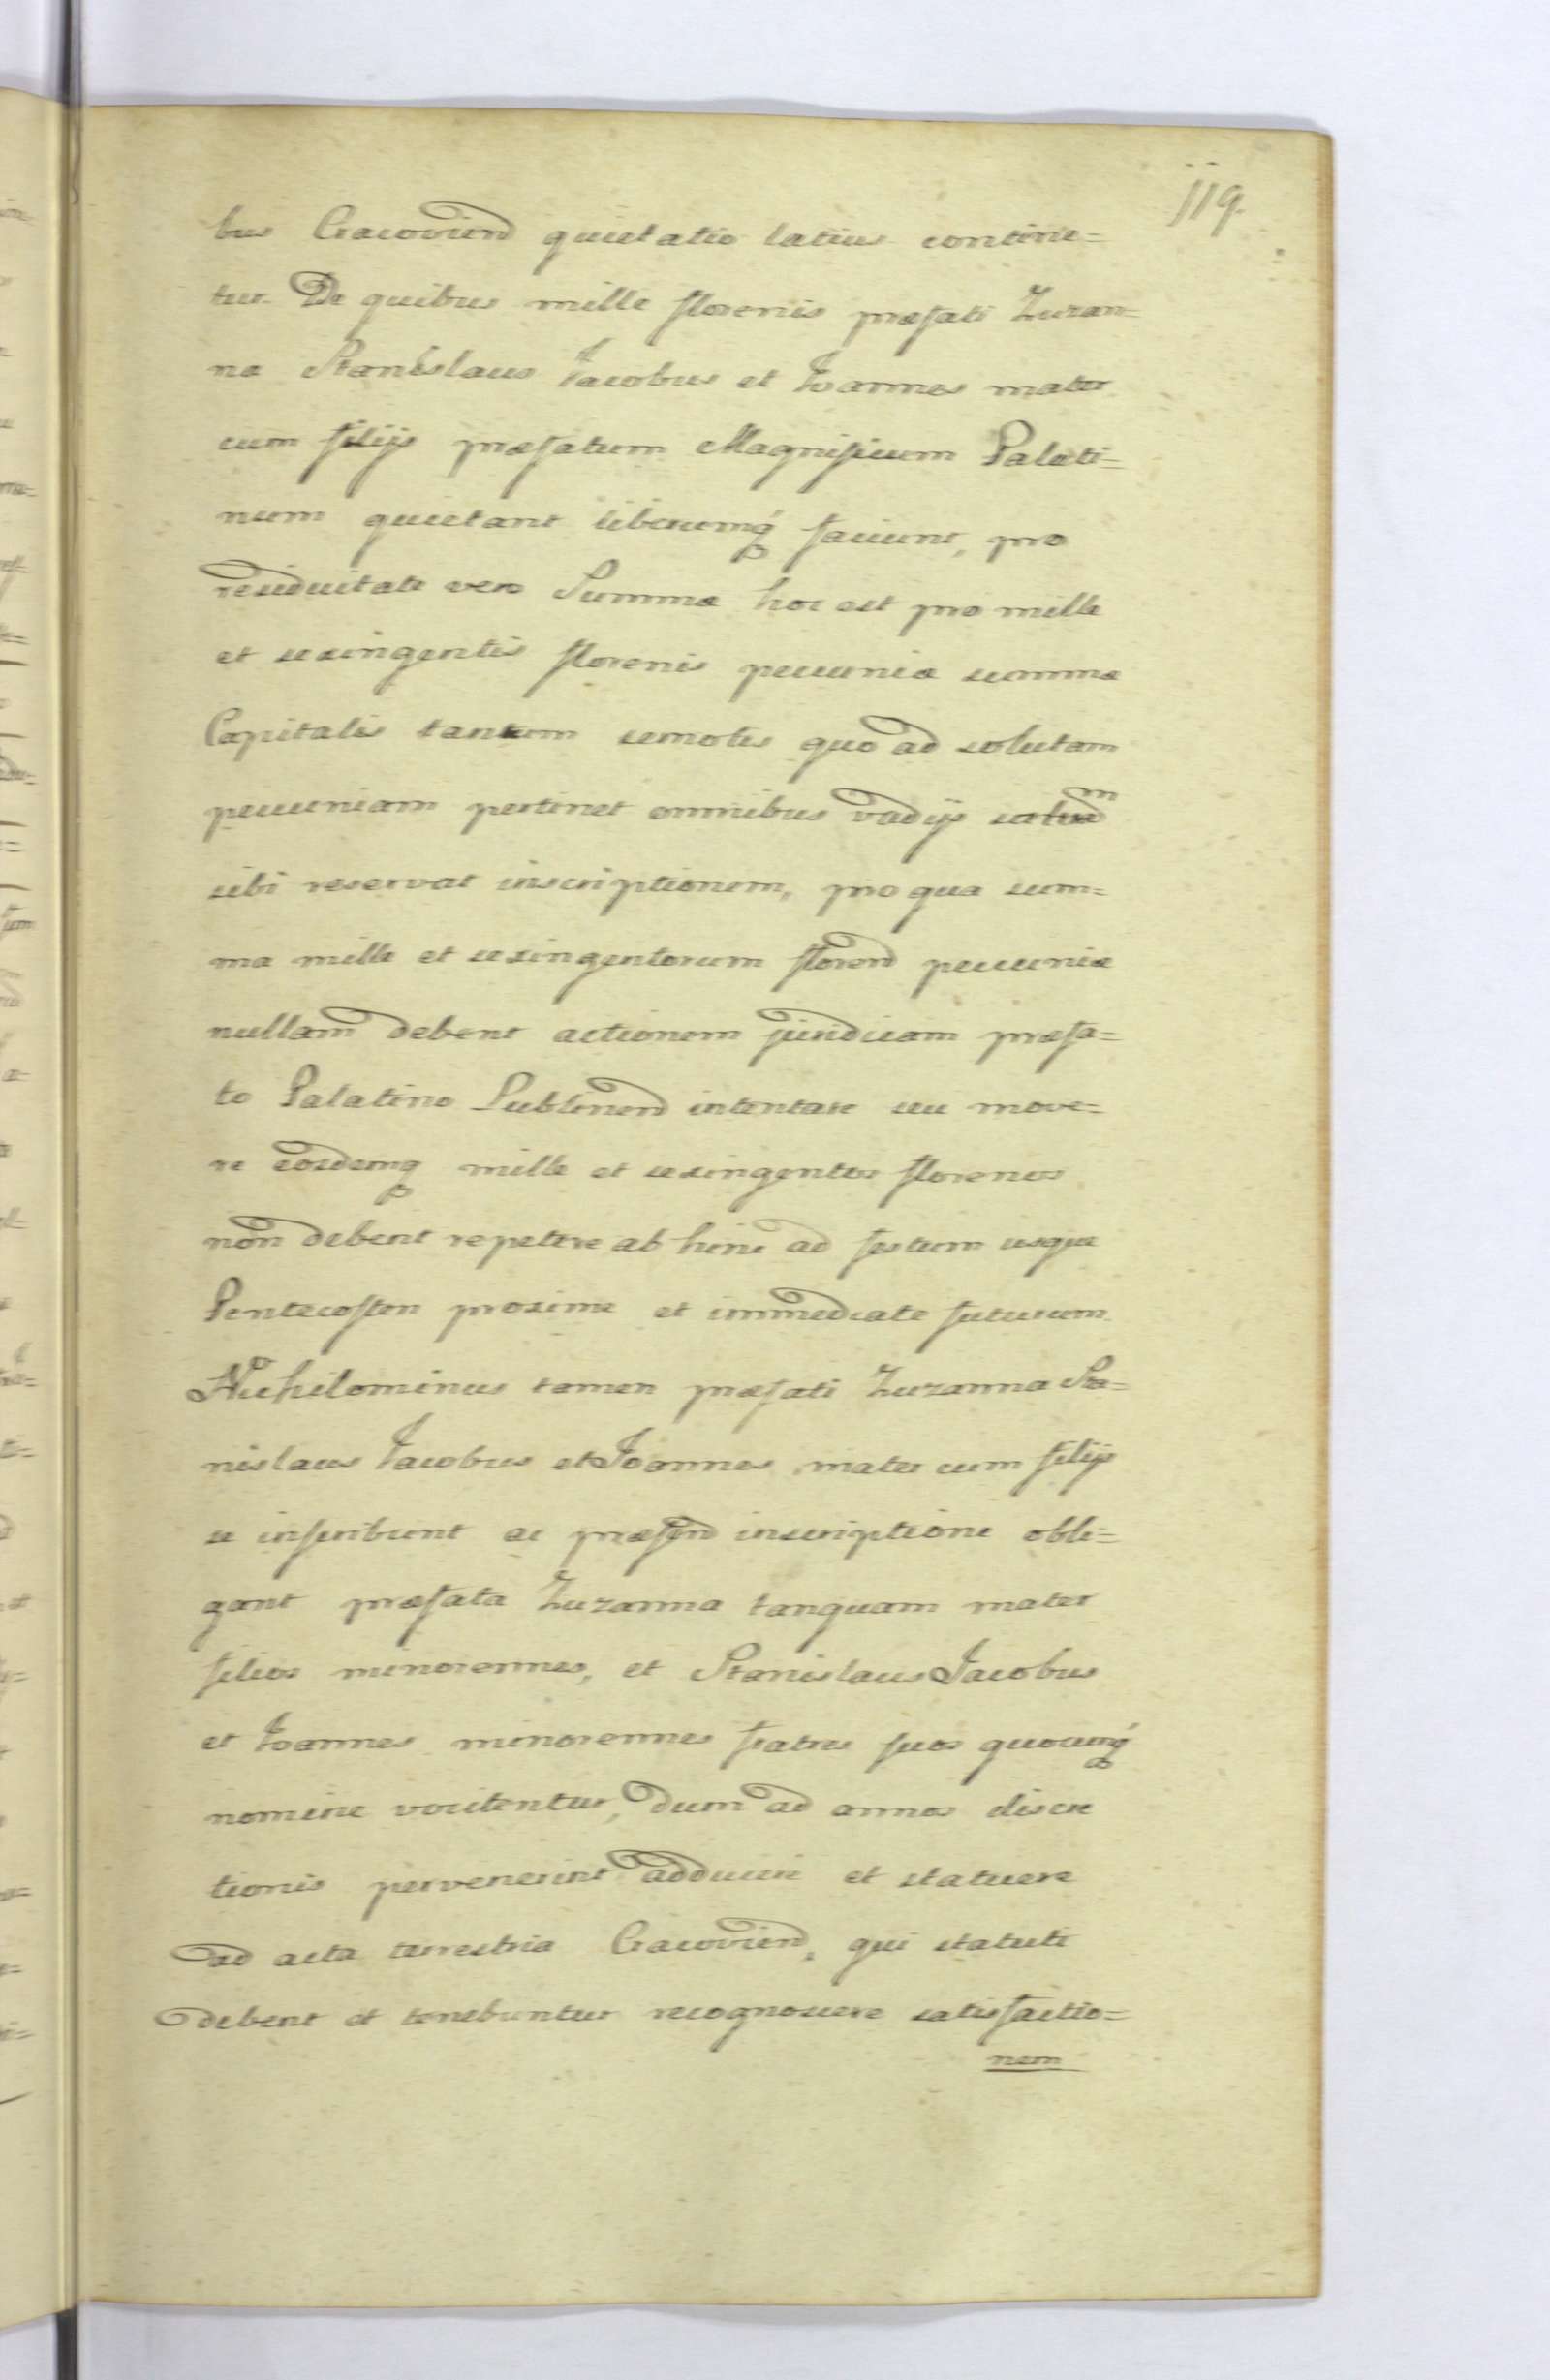 119.
bus Cracovien quietatio latius contine=
tur. De quibus mille florenis præfati Zuzan=
na Stanislaus Jacobus et Joannes mater
cum filijs præfatum Magnificum Palati=
num quietant liberumq́ faciunt, pro
residuitate vero Summæ hoc est pro mille
et sexingentis florenis pecuniæ summæ
Capitalis tantum semotis quo ad solutam
pecuniam pertinet omnibus vadijs
sibi reservat inscriptionem, pro qua sum=
ma mille et sexingentorum floren pecuniæ
nullam debent actionem juridicam præfa=
to Palatino Lublinen intentare seu move=
re eosdemq mille et sexingentos florenos
non debent repetere ab hinc ad festum usque
Pentecosten proxime et immediate futurum.
Nichilominus tamen præfati Zuzanna Sta=
nislaus Jacobus et Joannes mater cum filijs
se inscribunt ac præsen inscriptione obli=
gant præfata Zuzanna tanquam mater
filios minorennes, et Stanislaus Jacobus
et Joannes minorennes fratres suos quocumq́
nomine vocitentur, dum ad annos discre
tionis pervenerint adducere et statuere
ad acta terrestria Cracovien, qui statuti
debent et tenebuntur recognoscere satisfactio=
nem